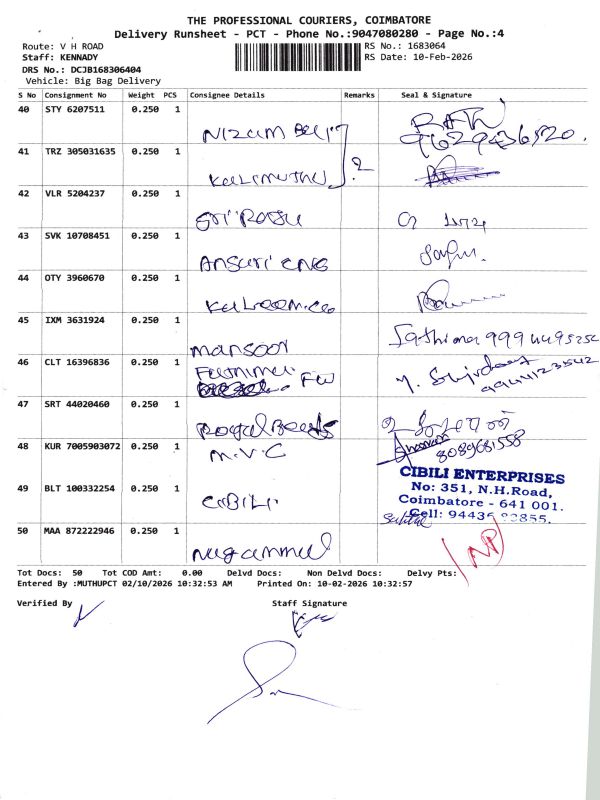 THE PROFESSIONAL COURIERS, COIMBATORE
Delivery Runsheet - PCT - Phone No.:9047080280 - Page No.:4
Route: V H ROAD
RS No.: 1683064
Staff: KENNADY
RS Date: 10-Feb-2026
DRS No.: DCJB168306404
Vehicle: Big Bag Delivery
S No Consignment No Weight PCS Consignee Details Remarks Seal & Signature
40 STY 6207511 0.250 1 Nizam
9629436520.
41 TRZ 305031635 0.250 1 Kalimuthu
2
42 VLR 5204237 0.250 1 Sri Raju
43 SVK 10708451 0.250 1 Ansari Eng
44 OTY 3960670 0.250 1
45 IXM 3631924 0.250 1 mansoor Sathima 9994495256
46 CLT 16396836 0.250 1
9944123542
47 SRT 44020460 0.250 1 Royal Beeds
48 KUR 7005903072 0.250 1 M.V.C 8089681558
49 BLT 100332254 0.250 1 CiBiLi
CIBILI ENTERPRISES
No: 351, N.H.Road,
Coimbatore - 641 001.
Cell: 9443
50 MAA 872222946 0.250 1 Nugammul
NP
Tot Docs: 50 Tot COD Amt: 0.00 Delvd Docs: Non Delvd Docs: Delvy Pts:
Entered By :MUTHUPCT 02/10/2026 10:32:53 AM Printed On: 10-02-2026 10:32:57
Verified By Staff Signature